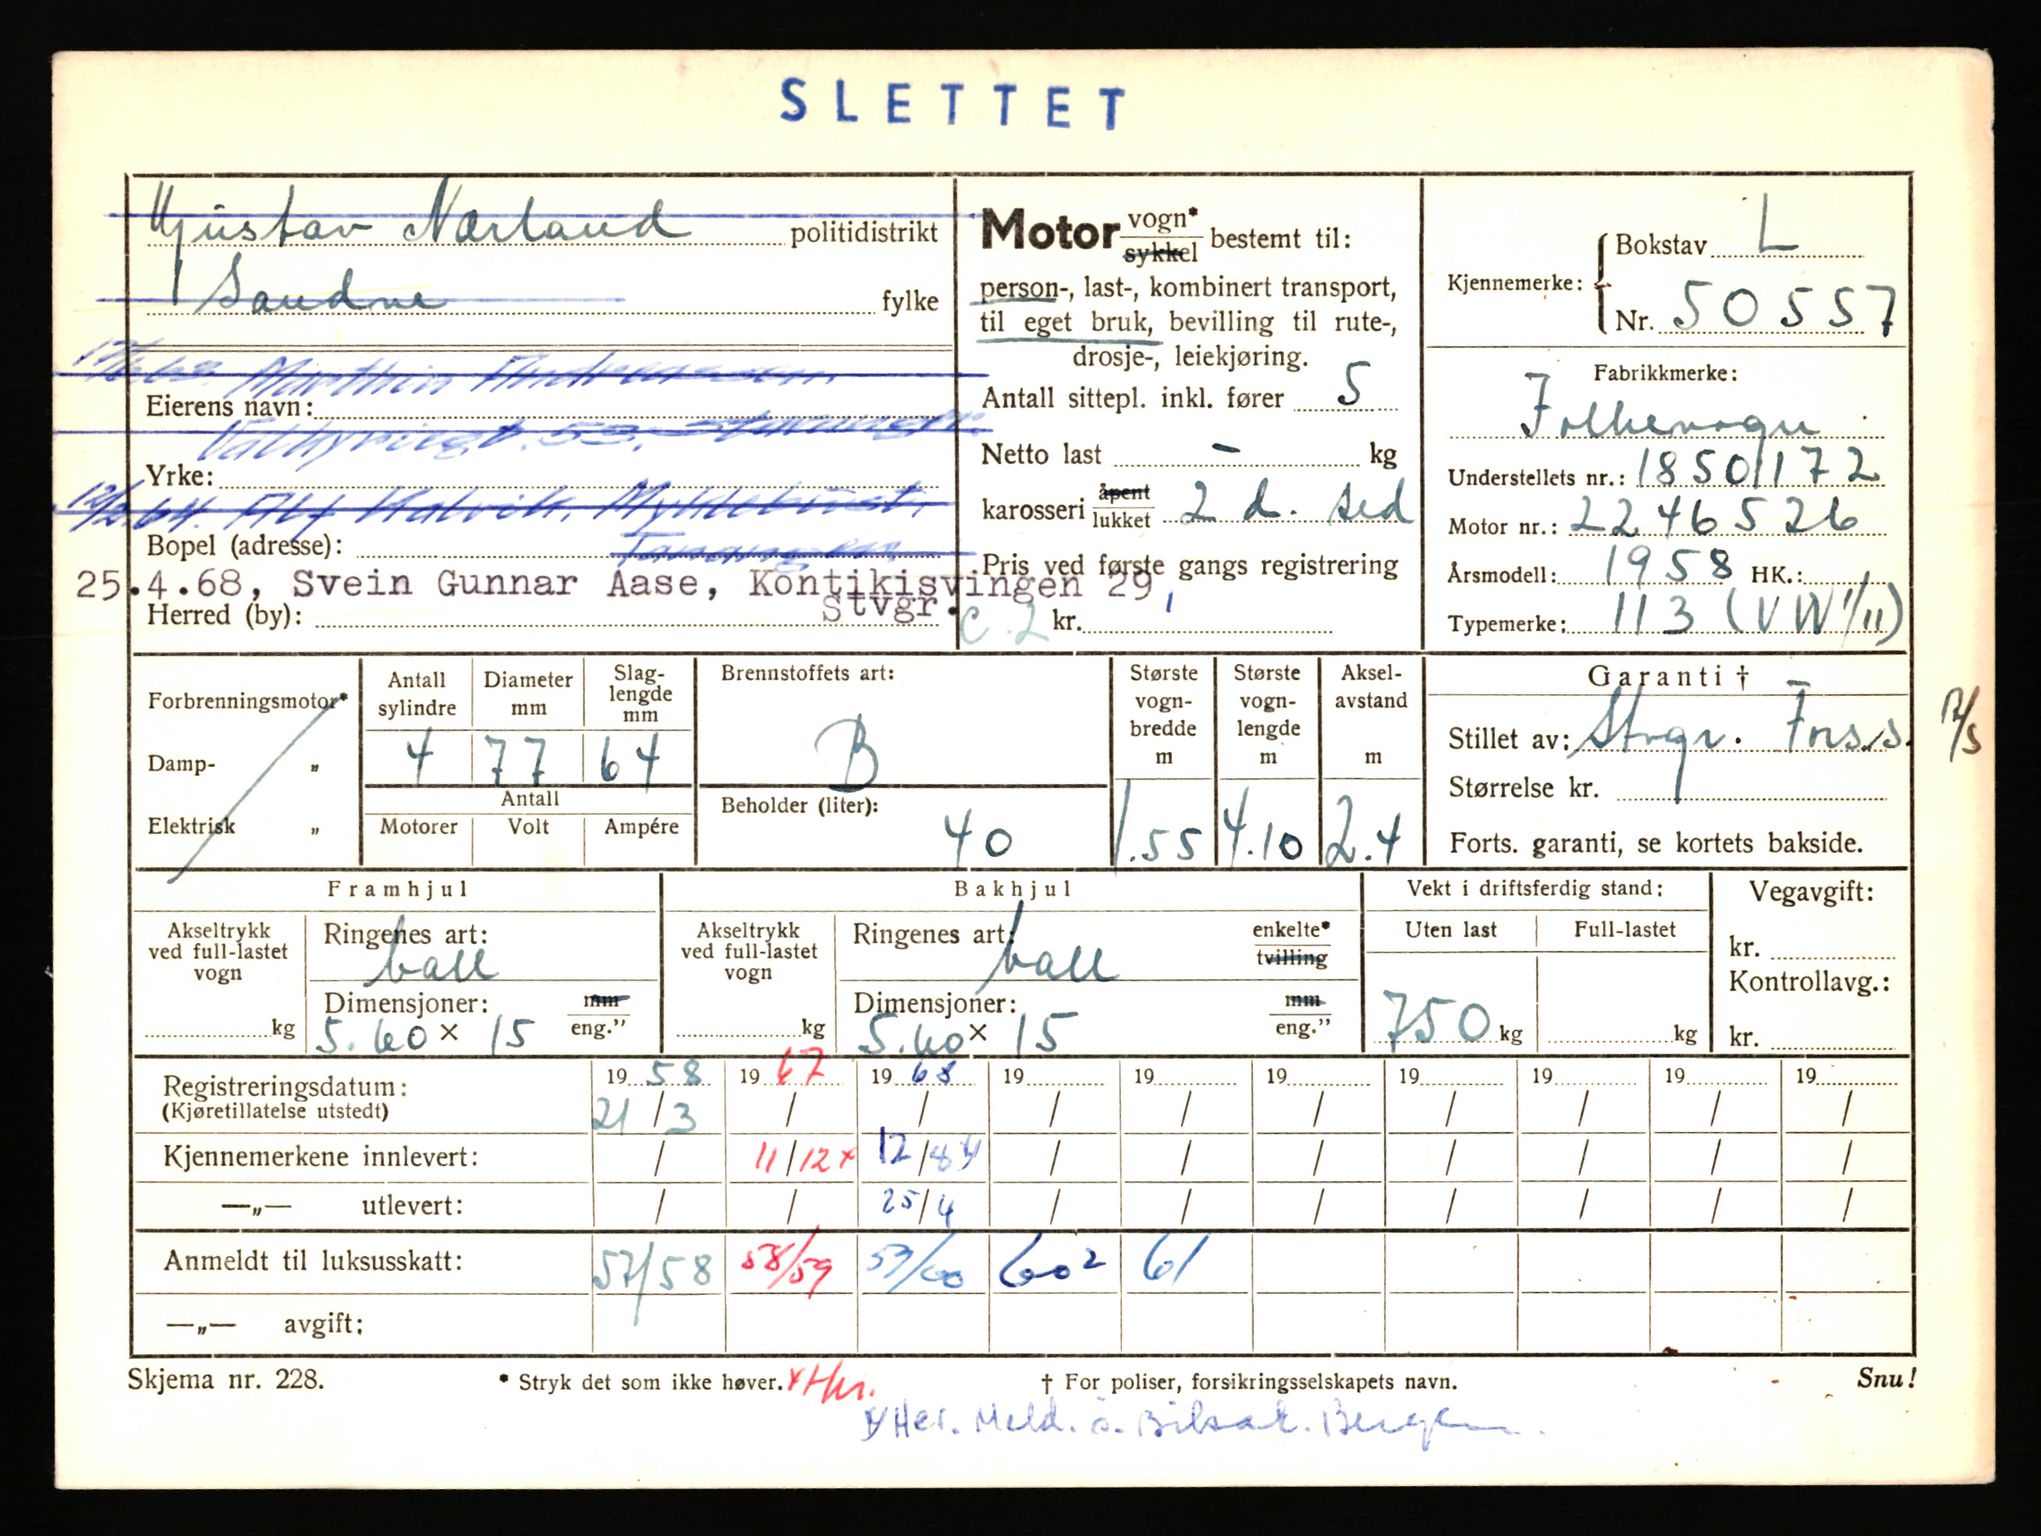 SLETTET
Gustav Nærland politidistrikt
Sandne fylke
Marthin Andreassen
Eierens navn:
Yrke:
12/2 64. Alf Kalvik, Myklebust,
Bopel (adresse): Tananger
25.4.68, Svein Gunnar Aase, Kontikisvingen 29
Stvgr.
Herred (by):
Motor vogn* / sykkel bestemt til:
person-, last-, kombinert transport,
til eget bruk, bevilling til rute-,
drosje-, leiekjøring.
Antall sittepl. inkl. fører 5
Netto last - kg
karosseri åpent / lukket 2 d. sed
Pris ved første gangs registrering
c.2 kr.
Kjennemerke: Bokstav L
Nr. 50557
Fabrikkmerke:
Folkevogn
Understellets nr.: 1850172
Motor nr.: 2246526
Årsmodell: 1958 HK.:
Typemerke: 113 (VW 1/11)
Forbrenningsmotor*
Damp- „
Elektrisk „
Antall sylindre 4
Diameter mm 77
Slaglengde mm 64
Antall
Motorer Volt Ampére
Brennstoffets art:
B
Beholder (liter):
40
Største vognbredde m 1.55
Største vognlengde m 4.10
Akselavstand m 2.4
Garanti †
Stillet av: Stvgr. Fors.s.
Størrelse kr.
Forts. garanti, se kortets bakside.
Framhjul
Akseltrykk ved full-lastet vogn kg
Ringenes art: ball
Dimensjoner: mm / eng."
5.60 × 15
Bakhjul
Akseltrykk ved full-lastet vogn kg
Ringenes art: ball enkelte* / tvilling
Dimensjoner: mm / eng."
5.60 × 15
Vekt i driftsferdig stand:
Uten last Full-lastet
750 kg kg
Vegavgift:
kr.
Kontrollavg.:
kr.
Registreringsdatum: 1958 1967 1968 19 19 19 19 19 19 19
(Kjøretillatelse utstedt) 21/3 / / / / / / / / /
Kjennemerkene innlevert: / 11/12 x 12/8 / / / / / / /
—„— utlevert: / / 25/4 / / / / / / /
Anmeldt til luksusskatt: 57/58 58/59 59/60 60² 61
—„— avgift:
Skjema nr. 228. * Stryk det som ikke høver. x Hr. † For poliser, forsikringsselskapets navn. Snu!
Her. Meld. Bilsak. Bergen.